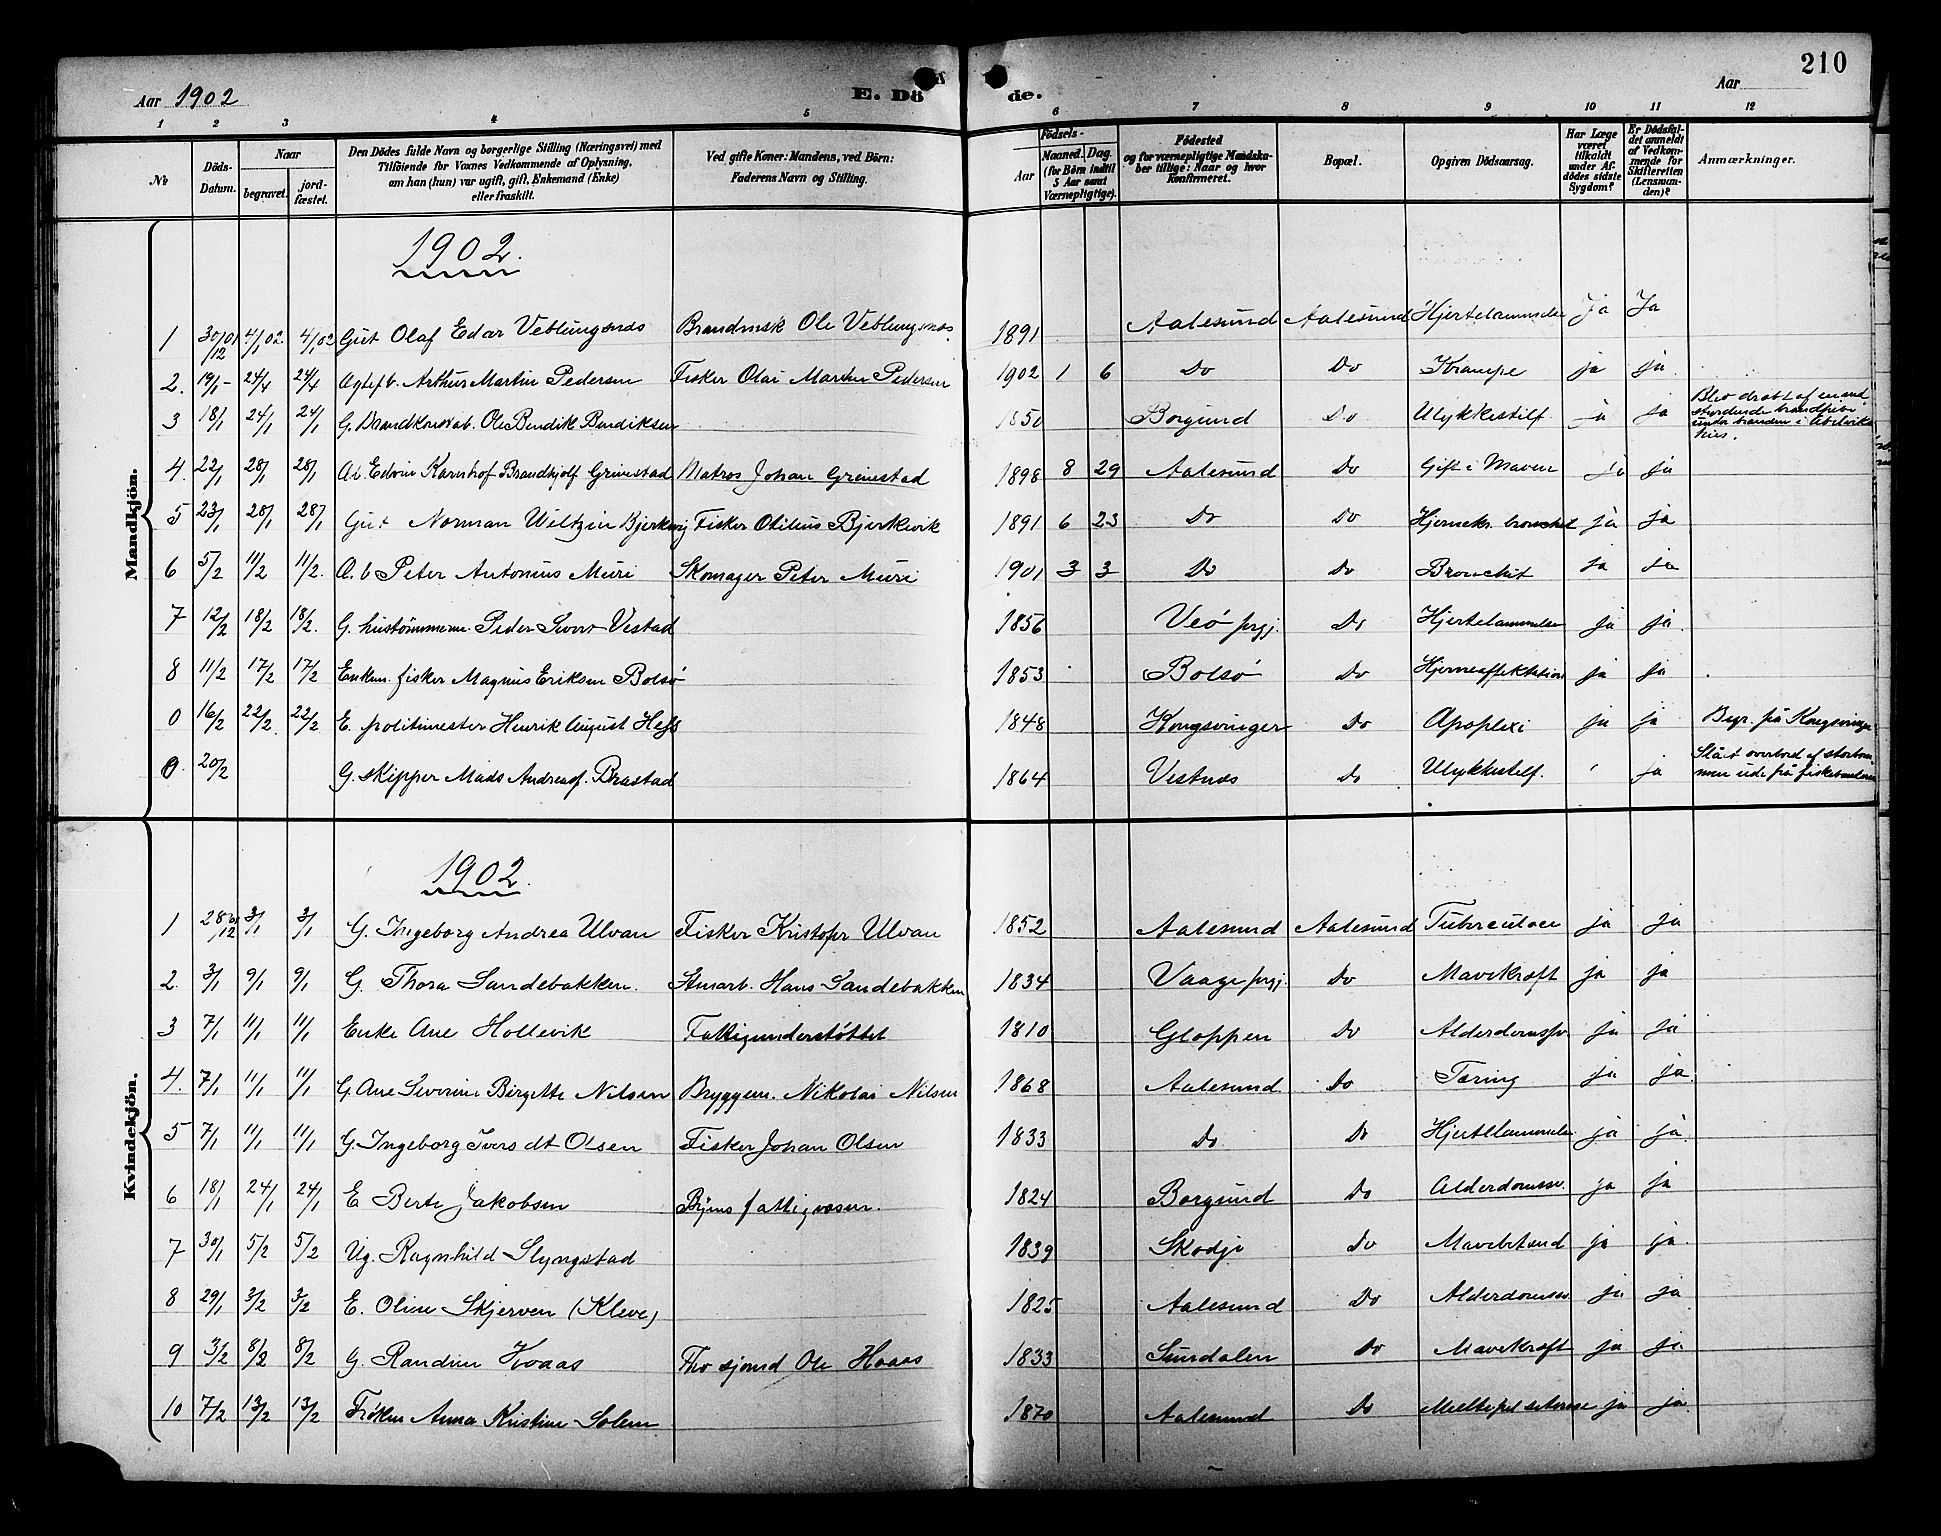 210
Aar 1902
E. Dö de.
Aar
1 2 3 4 5 6 7 8 9 10 11 12
№
Döds-Datum.
Naar
begravet.
jord-fæstet.
Den Dödes fulde Navn og borgerlige Stilling (Næringsvei) med
Tilföiende for Voxnes Vedkommende af Oplysning,
om han (hun) var ugift, gift, Enkemand (Enke)
eller fraskilt.
Ved gifte Koner: Mandens, ved Börn:
Faderens Navn og Stilling.
Födsels-
Aar
Maaned. Dag.
(for Börn indtil
5 Aar samt
Værnepligtige).
Födested
og for værnepligtige Mandska-
ber tillige: Naar og hvor
konfirmeret.
Bopæl.
Opgiven Dödsaarsag.
Har Læge
været
tilkaldt
under Af-
dödes sidste
Sygdom?
Er Dödsfal-
det anmeldt
af Vedkom-
mende for
Skifteretten
(Lensman-
den)?
Anmærkninger.
Mandkjön.
1902.
1 30/12 01 4/1 02 4/1 02 Gut Olaf Edar Veblungsnæs Brandmsk Ole Veblungsnæs. 1891 Aalesund Aalesund Hjertelammelse Ja Ja
2. 19/1 24/1 24/1 Ægtef b. Arthur Martin Pedersen Fisker Olai Martin Pedersen 1902 1 6 Do Do Krampe ja ja.
3 18/1 24/1 24/1 G. Brandkonstab. Ole Bendik Bendiksen 1850 Borgund Do Ulykkestilf. ja ja Blev dræbt af en ned-
styrtende brandpibe
under branden i
hus.
4. 22/1 28/1 28/1 Æ. Edvin Karnhof Brandkjolf Grimstad Matros Johan Grimstad 1898 8 29 Aalesund Do Gift i Maven ja ja
5 23/1 28/1 28/1 Gut Norman Weltzin Bjerkevig Fisker Otilius Bjerkevik 1891 6 23 Do Do Hjernekr. bronchit ja ja
6 5/2 11/2 11/2. Æ. b Peter Antonius Muri Skomager Peter Muri 1901 3 3 Do Do Bronchit ja ja
7 12/2 18/2 18/2. G. hustømmerm. Peder Sivert Vestad 1856 Veö prgj. Do Hjertelammelse ja ja.
8 11/2 17/2 17/2 Enkem. fisker Magnus Eriksen Bolsø 1853 Bolsø Do Hjerneaffektation ja ja
0 16/2 22/2 22/2 E. politimester Henrik August Hess 1848 Kongsvinger Do Apoplexi ja ja Begr. på Kongsvinger
0. 20/2 G. skipper Mads Andreas Brastad 1864 Vestnæs do Ulykkestilf. ja Slået overbord af storbom-
men ude på fiskebankerne
Kvindekjön.
1902.
1 28/12 01 3/1 3/1 G. Ingeborg Andrea Ulvan Fisker Kristofer Ulvan 1852 Aalesund Aalesund Tuberculose ja ja
2. 3/1 9/1 9/1 G. Thora Sandebakken. Stuarb. Hans Sandebakken 1834 Vaage prgj. Do Mavekræft ja ja
3 7/1 11/1 11/1 Enke Ane Hollevik Fattigunderstøttet 1810 Gloppen Do Alderdomssv. ja ja
4. 7/1 11/1 11/1 G. Ane Severine Birgitte Nilsen Bryggem. Nikolai Nilsen 1868 Aalesund. Do Tæring ja ja.
5 7/1 11/1 11/1 G. Ingeborg Iversdt Olsen Fisker Johan Olsen 1833 Do Do Hjertelammelse ja ja.
6 18/1 24/1 24/1 E Berte Jakobsen Byens fattigvæsen. 1824 Borgund Do Alderdomssv. ja ja
7 30/1 5/2 5/2 Ug. Ragnhild Slyngstad 1839 Skodje Do Mavebetænd ja ja.
8 29/1 3/2 3/2 E. Oline Skjerven (Kleve) 1825 Aalesund Do Alderdomssv. ja ja
9 3/2 8/2 8/2 G. Randine Hoaas Ole Hoaas 1833 Sundalen Do Mavekræft ja ja
10 7/2 13/2 13/2 Frøken Anna Kristine Solem 1870 Aalesund Do Multipel sclerose ja ja.